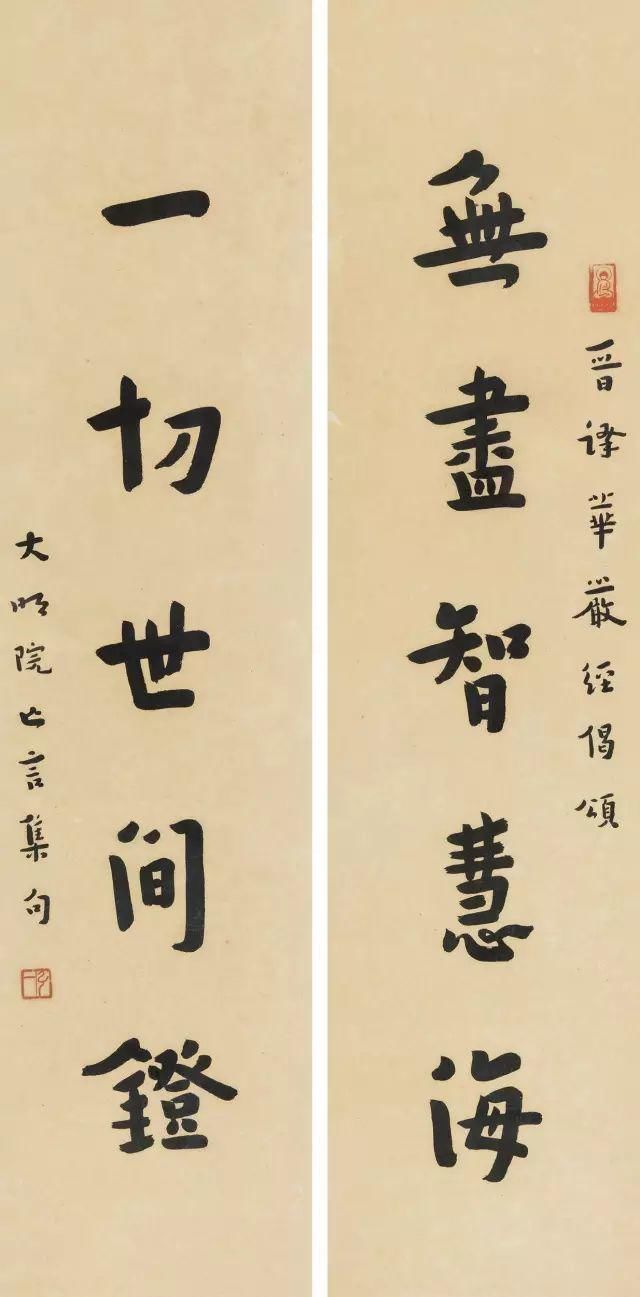 晉譯華嚴經偈頌
無盡智慧海
一切世間鐙
大明院亡言集句
弘一